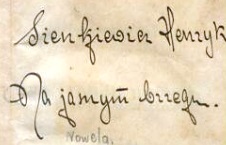 Sienkiewicz Henryk
Na jasnym brzegu.
Nowela.